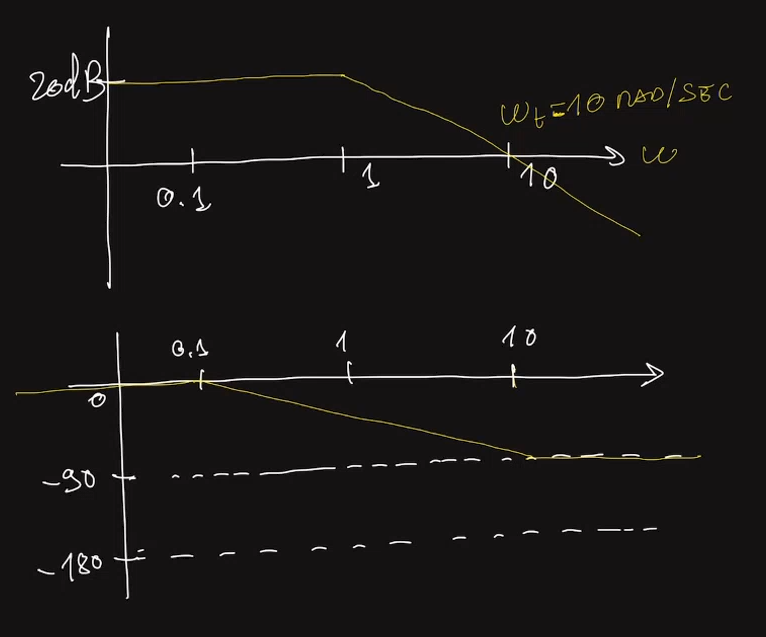 20dB
ωt=10 RAD/SEC
ω
0.1
1
10
0.1
1
10
0
-90
-180